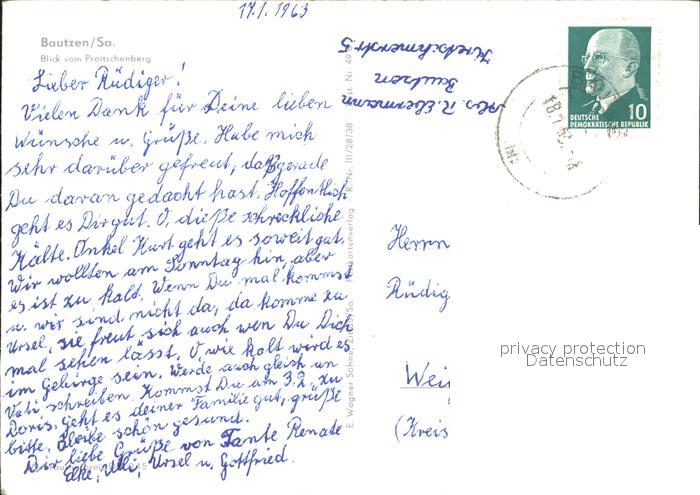 17.1.1963
Bautzen/Sa.
Blick vom Proitschenberg
Lieber Rüdiger!
Vielen Dank für Deine lieben
Wünsche u. Grüße. Habe mich
sehr darüber gefreut, daß gerade
Du daran gedacht hast. Hoffentlich
geht es Dir gut. O, dieße schreckliche
Kälte. Onkel Kurt geht es soweit gut.
Wir wollten am Sonntag hin, aber
es ist zu kalt. Wenn Du mal kommst
u. wir sind nicht da, da komme zu
Ursel, sie freut sich auch wen Du Dich
mal sehen lässt. O wie kalt wird es
im Gebirge sein. Werde auch gleich an
Vati schreiben. Kommst Du am 3.2. zu
Doris. Geht es deiner Familie gut, grüße
bitte. Bleibe schön gesund.
Dir liebe Grüße von Tante Renate
Elke, Uli, Ursel u. Gottfried.
E. Wagner Söhne, Zittau/Sa. III/28/38
Abs. R. Ebermann
Bautzen
Kretschmerstr. 5
10
DEUTSCHE
DEMOKRATISCHE REPUBLIK
Herrn
Rüdig
Wei
(Kreis
privacy protection
Datenschutz